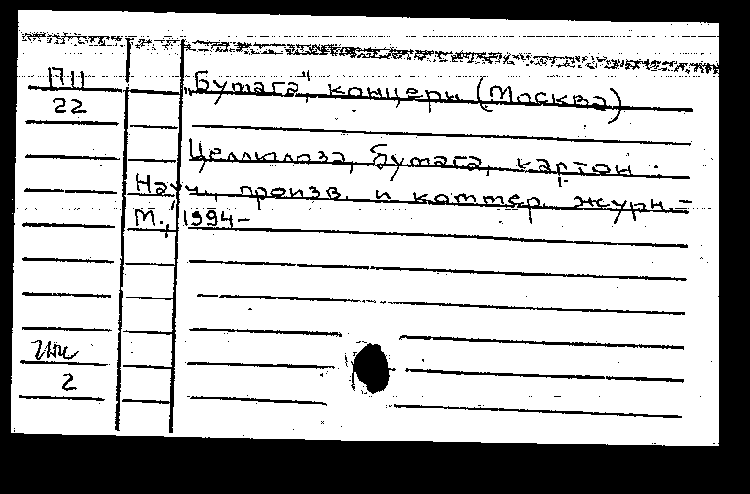 П11
22
"Бумага", концерн (Москва)
Целлюлоза, бумага, картон :
Науч., произв. и коммер. журн.-
М., 1994-
2